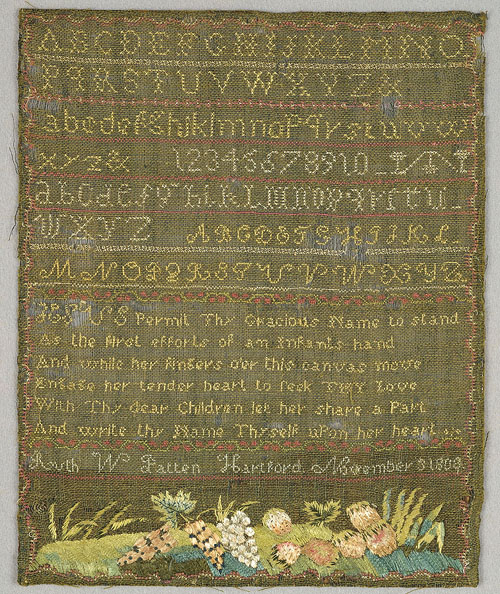 A B C D E F G H I J K L M N O
P Q R S T U V W X Y Z &
a b c d e f g h i k l m n o p q r s t u v w
x y z & 1 2 3 4 5 6 7 8 9 1 0
a b c d e f g h i k l m n o p q r s t u
W X Y Z A B C D E F G H I J K L
M N O P Q R S T U V W X Y Z
JESUS Permit Thy Gracious Name to stand
As the first efforts of an Infants hand
And while her fingers o'er this canvas move
Engage her tender heart to seek THY Love
With Thy dear Children let her share a Part
And write thy Name Thyself upon her heart
Ruth W Patten Hartford November 3 1809